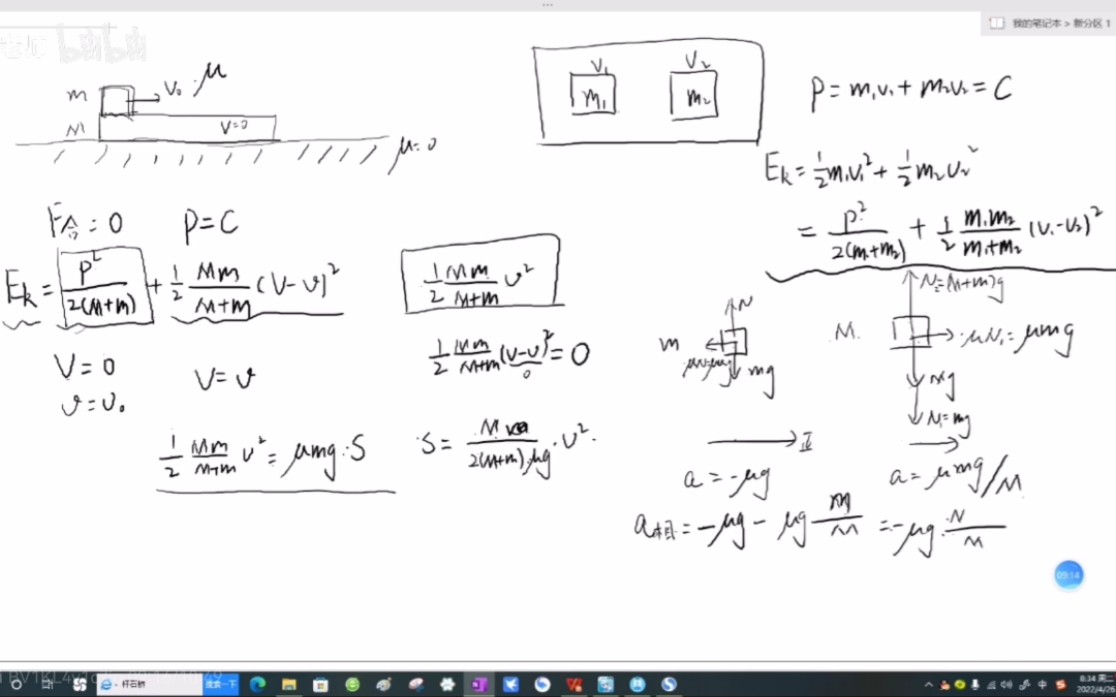 我的笔记本 > 新分区 1
老师 bilibili
m V₀ μ
M V=0
μ=0
V₁ V₂
m₁ m₂
P = m₁v₁ + m₂v₂ = C
Eₖ = 1/2 m₁v₁² + 1/2 m₂v₂²
= P²/2(m₁+m₂) + 1/2 m₁m₂/(m₁+m₂) (v₁-v₂)²
F合 = 0 P = C
Eₖ = P²/2(M+m) + 1/2 Mm/(M+m) (V-v)²
1/2 Mm/(M+m) v²
V = 0
v = v₀
V = v
1/2 Mm/(M+m) (V-v)² = 0
0
1/2 Mm/(M+m) v² = μmg·S
N
m
mg
N₂=(M+m)g
M
μN₁ = μmg
Mg
N₁=mg
a = -μg
a = μmg/M
a相 = -μg - μg m/M = -μg·
09:14
杆石桥
搜索一下
中
8:34 周二